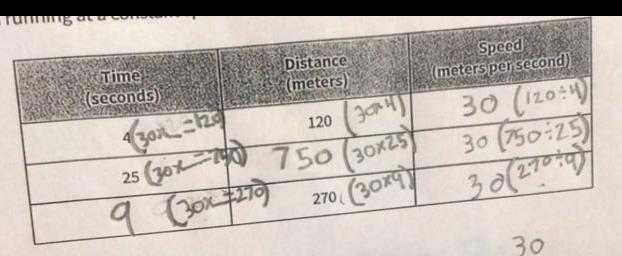 running at a constant
Time
(seconds)
Distance
(meters)
Speed
(meters per second)
4 (30x = 120
120 (30x4)
30 (120÷4)
25 (30x = 750)
750 (30x25)
30 (750÷25)
9 (30x = 270)
270 (30x9)
30 (270÷9)
30